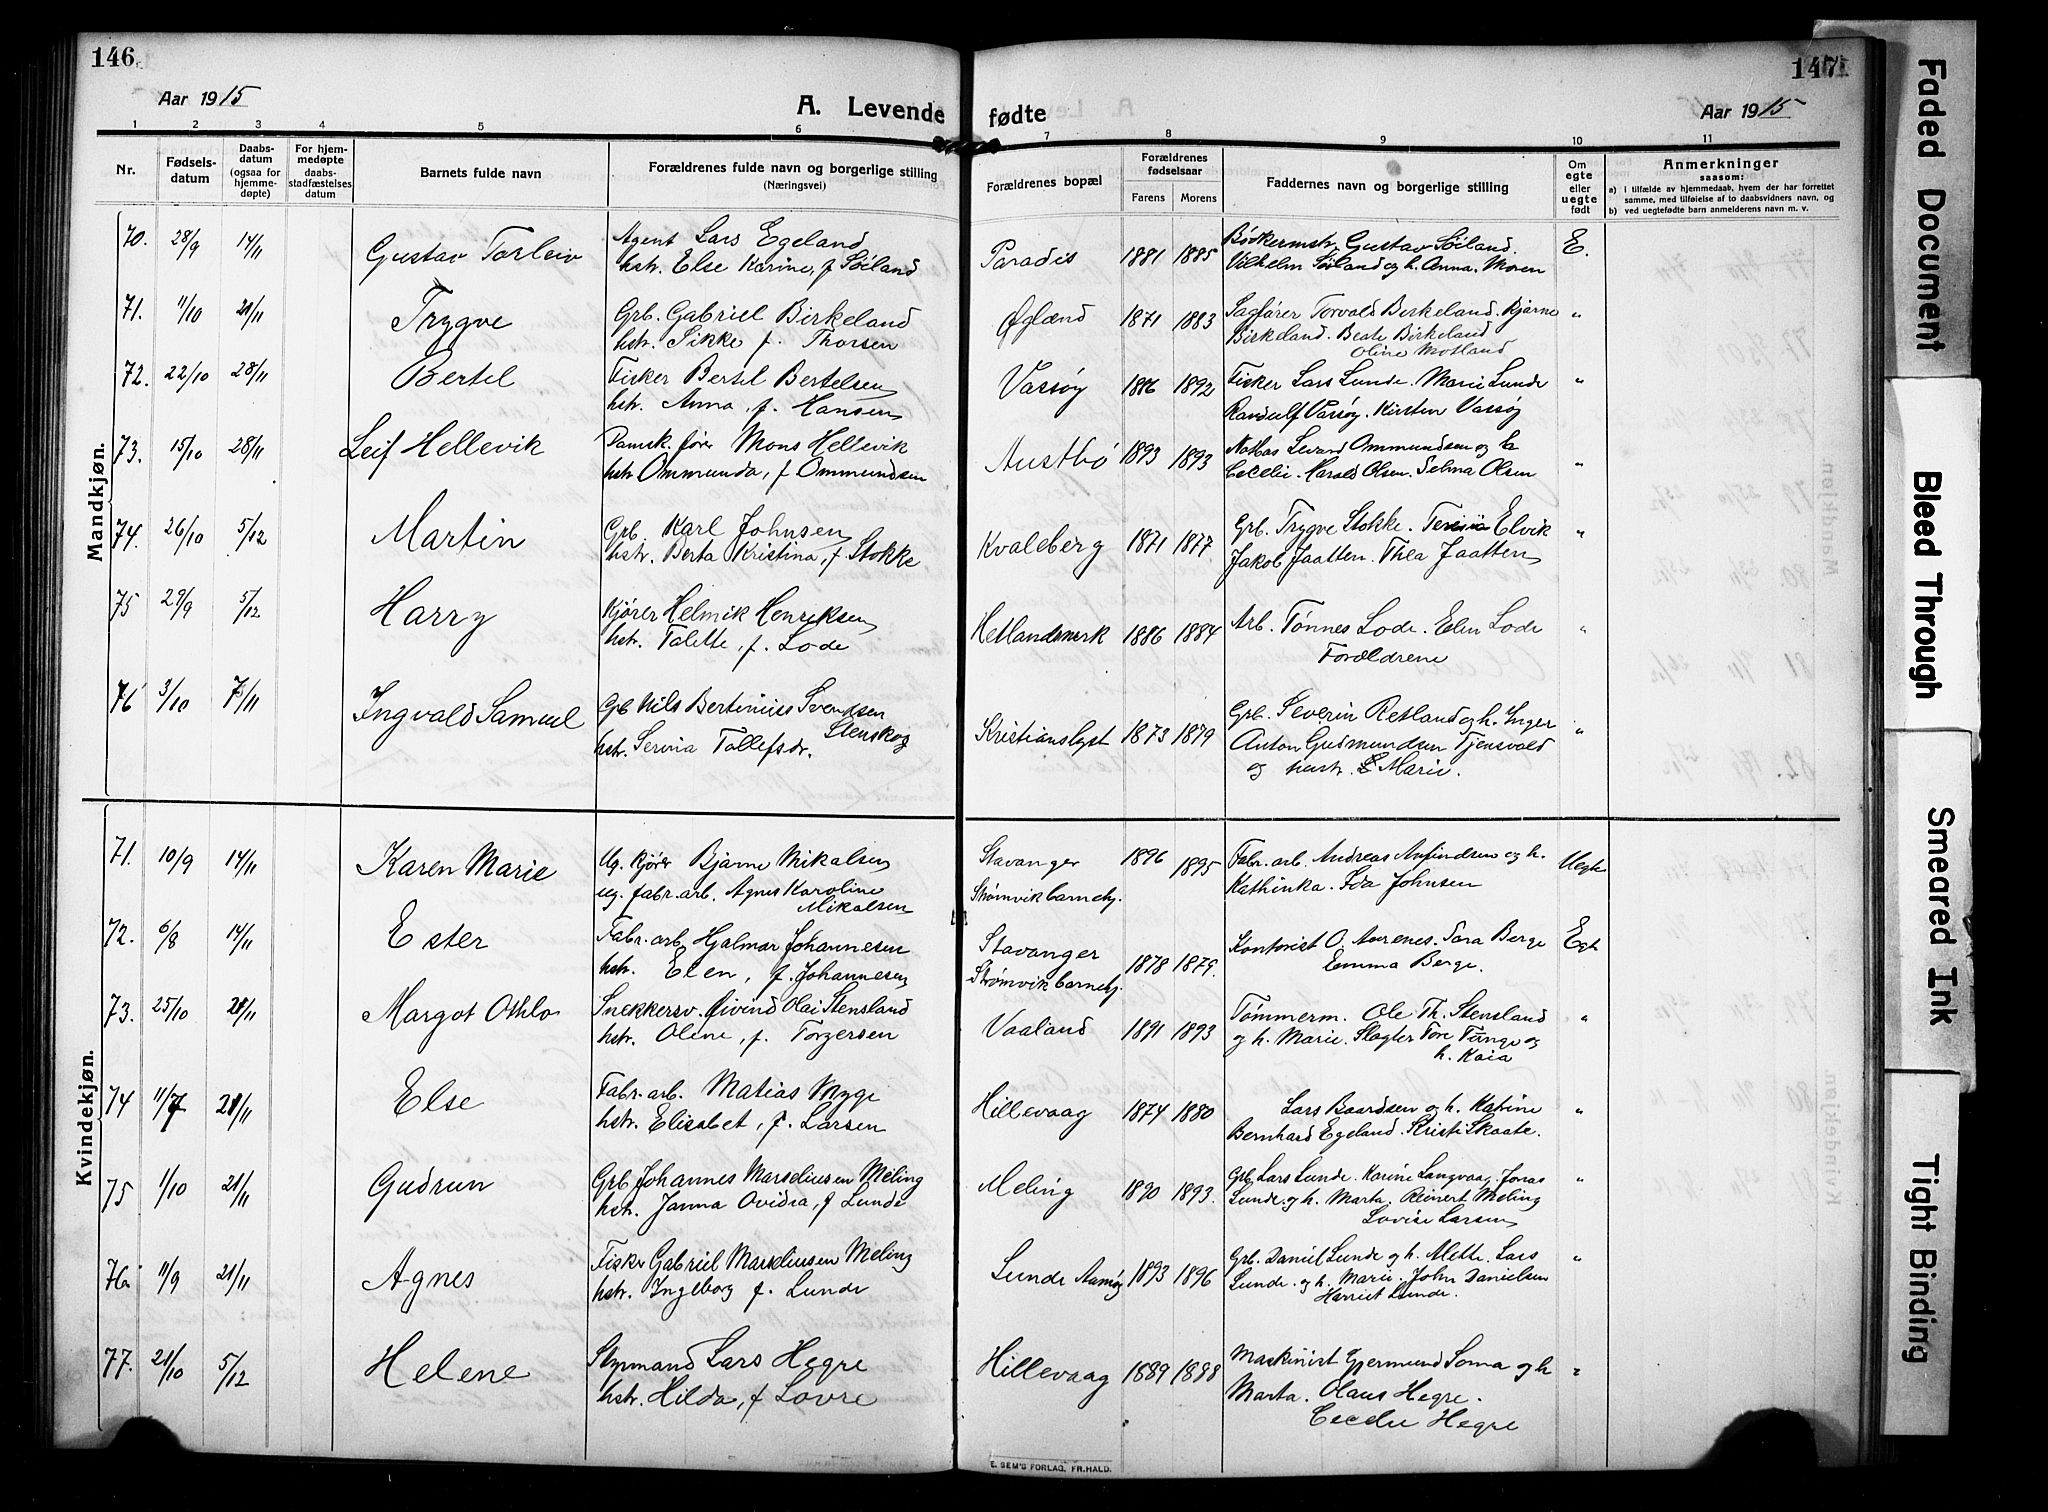 146
147
Aar 1915
A. Levende
fødte
Aar 1915
1 2 3 4 5 6 7 8 9 10 11
Nr.
Fødsels-
datum
Daabs-
datum
(ogsaa for
hjemme-
døpte)
For hjem-
medøpte
daabs-
stadfæstelses
datum
Barnets fulde navn
Forældrenes fulde navn og borgerlige stilling
(Næringsvei)
Forældrenes bopæl
Forældrenes
fødselsaar
Farens Morens
Faddernes navn og borgerlige stilling
Om
egte
eller
uegte
født
Anmerkninger
saasom:
a) i tilfælde av hjemmedaab, hvem der har forrettet
samme, med tilføielse af to daabsvidners navn, og
b) ved uegtefødte barn anmelderens navn m. v.
Mandkjøn.
70. 28/9 14/11 Gustav Torleiv
Agent Lars Egeland
hstr. Else Karine, f Söiland
Paradis 1881 1885
Bödkermstr Gustav Söiland.
Vilhelm Söiland og h. Anna. Moren
E.
71. 11/10 21/11 Trygve
Grb. Gabriel Birkeland
hstr. Sikke f. Thorsen
Øglænd 1871 1883
Sagfører Torvald Birkeland. Bjarne
Birkeland. Beate Birkeland
Oline Motland
"
72. 22/10 28/11 Bertel
Fisker Bertel Bertelsen
hstr. Anna, f. Hansen
Vassøy 1886 1892
Fisker Lars Lunde. Marie Lunde
Randulf Vassøy. Kirsten Vassøy
"
73. 15/10 28/11 Leif Hellevik
Damsk. fører Mons Hellevik
hstr Ommunda, f Ommundsen
Austbö 1893 1893
Levard Ommundsen og h
Cecelie. Harald Olsen. Selma Olsen
"
74. 26/10 5/12 Martin
Grb. Karl Johnsen
hstr. Berta Kristina, f Stokke
Kvaleberg 1871 1877
Grb. Trygve Stokke. Teresia Elvik
Jakob Jaatten. Thea Jaatten
"
75 29/9 5/12 Harry
Kjører Helmik Henriksen
hstr. Talette, f. Lode
Hetlandsmrk 1886 1884
Arb. Tönnes Lode. Elen Lode
Forældrene
"
76 3/10 7/11 Ingvald Samuel
Grb Nils Bertinius Svendsen
Stenskog
hstr. Serina Tollefsdr.
Kristianslyst 1873 1879
Grb. Severin Retland og h. Inger
Anton Gudmundsen Tjensvold
og hustr. Marie.
"
Kvindekjøn.
71. 10/9 14/11 Karen Marie
Ug. kjører Bjarne Mikalsen
ug. fabr. arb. Agnes Karoline
Mikalsen
Stavanger
Strømvik barnehj.
1896 1895
Fabr. arb. Andreas Anfindsen og h.
Kathinka. Ida Johnsen
Uegte
72. 6/8 14/11 Ester
Fabr. arb. Hjalmar Johannesen
hstr. Elen, f. Johannesen
Stavanger
Strømvik barnehj.
1878 1879.
Kontorist O. Aarenes. Sara Berge
Emma Berge.
Egte
73. 25/10 21/11 Margot Othlo
Snekkersv. Eivind Olai Stensland
hstr. Oline, f. Torgersen
Vaaland 1891 1893
Tömmerm. Ole Th. Stensland
og h. Marie. Slagter Tore Tunge og
h. Kaia
"
74 11/7 21/11 Else
Fabr. arb. Matias Myge
hstr. Elisabet, f. Larsen
Hillevaag 1874 1880
Lars Baardsen og h. Katrine
Bernhard Egeland. Kristi Skaate.
"
75 1/10 21/11 Gudrun
Grb Johannes Marseliusen Meling
hstr. Janna Ovidia, f Lunde
Meling 1890 1893.
Grb. Lars Lunde. Karine Langvaag. Jonas
Lunde. og h. Marta. Reinert Meling
Lovise Larsen
"
76 11/9 21/11 Agnes
Fisker Gabriel Marseliusen Meling
hstr. Ingeborg f. Lunde
Lunde Aamøy 1893 1896
Grb. Daniel Lunde og h. Alette. Lars
Lunde. og h. Marie. John Danielsen
Harriet Lunde.
"
77. 21/10 5/12 Helene
Styrmand Lars Hegre
hstr. Hilda, f Lovre
Hillevaag 1889 1888
Maskinist Gjermund Soma og h
Marta. Olaus Hegre.
Cecelie Hegre
"
E. SEM'S FORLAG, FR.HALD.
Faded Document
Bleed Through
Smeared Ink
Tight Binding